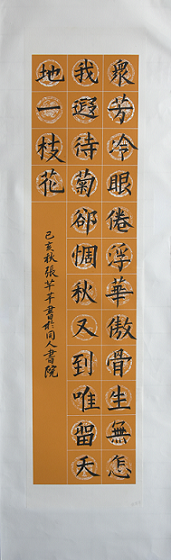 眾芳冷眼倦浮華傲骨生無怎
我遐待菊郤惆秋又到唯留天
地一枝花
己亥秋張苹平書於同人書院